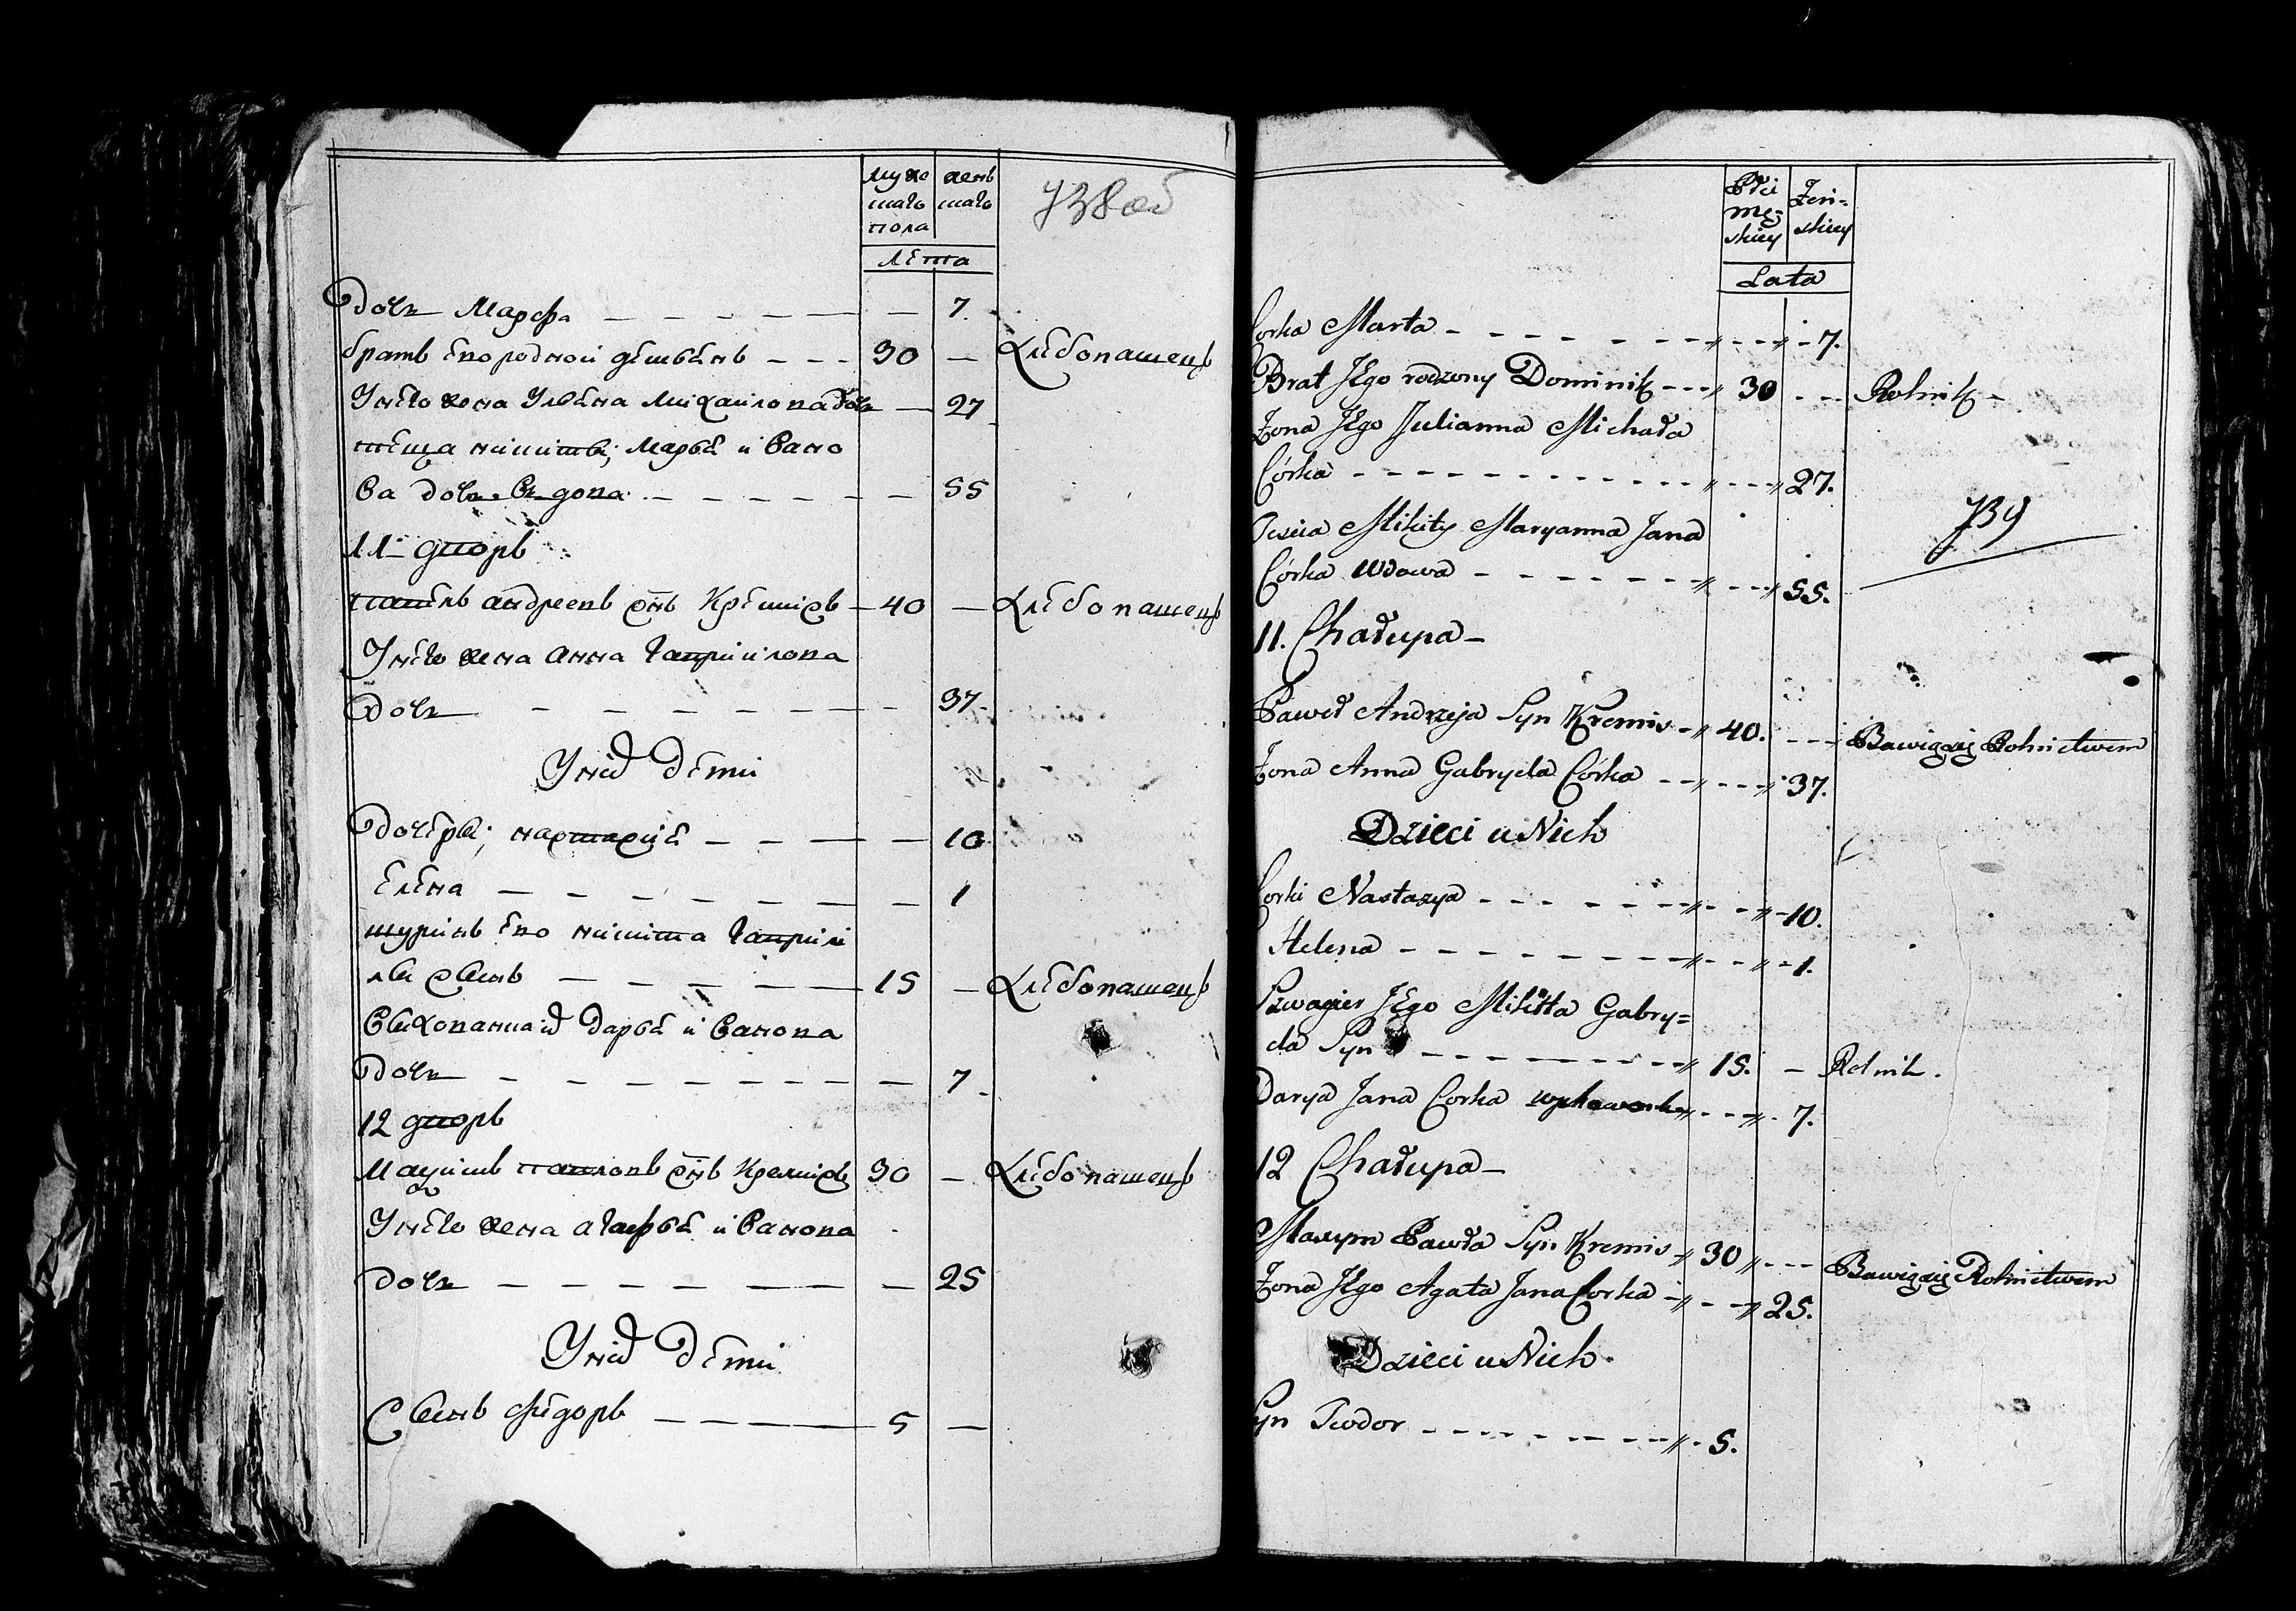 мужескаго пола
женскаго
738об
лета
дочь Марфа — 7.
братъ его родной демьянъ 30 — хлебопашецъ
У него жена Ульяна михаилова дочь — 27
теща никиты; Марья ивано
ва дочь вдова — 55
11 дворъ
павелъ андреевъ сынъ Кремисъ 40 — хлебопашецъ
У него жена анна гаврилова
дочь — 37.
У них дети
дочери; настасия — 10
елена — 1
шуринъ его никита гаври
лы сынъ 15 — хлебопашецъ
Выхованица дарья иванова
дочь — 7.
12 дворъ
Максимъ павловъ сынъ Кремисъ 30 — хлебопашецъ
У него жена агафья иванова
дочь — 25
У них дети
Сынъ фёдоръ 5 —
Płci męskiey
Żeńskiey
Lata
Corka Marta 7.
Brat Jego rodzony Dominik 30 Rolnik
Żona Jego Julianna Michała
Córka 27.
739
Teścia Mikity Maryanna Jana
Córka Wdowa 55.
11. Chałupa
Paweł Andrzeja Syn Kremis 40. Bawiący się Rolnictwem
Żona Anna Gabryela Córka 37.
Dzieci u Nich
Corki Nastazya 10.
Helena 1.
Szwagier Jego Mikitta Gabry=
ela Syn 15. Rolnik.
Darya Jana Corka wychowanka 7.
12 Chałupa
Maxym Pawła Syn Kremis 30 Bawiący się Rolnictwem
Żona Jego Agata Jana Corka 25.
Dzieci u Nich
Syn Teodor 5.